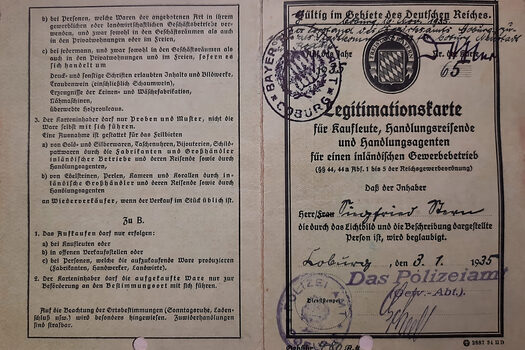 b) bei Personen, welche Waren der angebotenen Art in ihrem
gewerblichen oder landwirtschaftlichen Geschäftsbetriebe ver-
wenden, und zwar sowohl in den Geschäftsräumen als auch
in den Privatwohnungen oder im Freien,
c) bei jedermann, und zwar sowohl in den Geschäftsräumen als
auch in den Privatwohnungen und im Freien, sofern es
sich handelt um
Druck- und sonstige Schriften erlaubten Inhalts und Bildwerke,
Traubenwein (einschließlich Schaumwein),
Erzeugnisse der Leinen- und Wäschefabrikation,
Nähmaschinen,
überwebte Holzrouleaux.
3. Der Karteninhaber darf nur Proben und Muster, nicht die
Ware selbst mit sich führen.
Eine Ausnahme ist gestattet für das Feilbieten
a) von Gold- und Silberwaren, Taschenuhren, Bijouterien, Schild-
pattwaren durch die Fabrikanten und Großhändler
inländischer Betriebe und deren Reisende sowie durch
Handlungsagenten,
b) von Edelsteinen, Perlen, Kameen und Korallen durch in-
ländische Großhändler und deren Reisende sowie durch
Handlungsagenten
an Wiederverkäufer, wenn der Verkauf im Stück üblich ist.
Zu B.
1. Das Aufkaufen darf nur erfolgen:
a) bei Kaufleuten oder
b) in offenen Verkaufsstellen oder
c) bei Personen, welche die aufzukaufende Ware produzieren
(Fabrikanten, Handwerker, Landwirte).
2. Der Karteninhaber darf die aufgekaufte Ware nur zur
Beförderung an den Bestimmungsort mit sich führen.
Auf die Beachtung der Ortsbestimmungen (Sonntagsruhe, Laden-
schluß usw.) wird besonders hingewiesen. Zuwiderhandlungen
sind strafbar.
Gültig im Gebiete des Deutschen Reiches.
Jahr 1935
65
BAYER.
COBURG
Legitimationskarte
für Kaufleute, Handlungsreisende
und Handlungsagenten
für einen inländischen Gewerbebetrieb
(§§ 44, 44a Abs. 1 bis 5 der Reichsgewerbeordnung)
Daß der Inhaber
Herr Frau Siegfried Stern
die durch das Lichtbild und die Beschreibung dargestellte
Person ist, wird beglaubigt.
Coburg, den 3. 1. 1935
Das Polizeiamt
(Gew.-Abt.).
POLIZEIAMT
Dienstsiegel